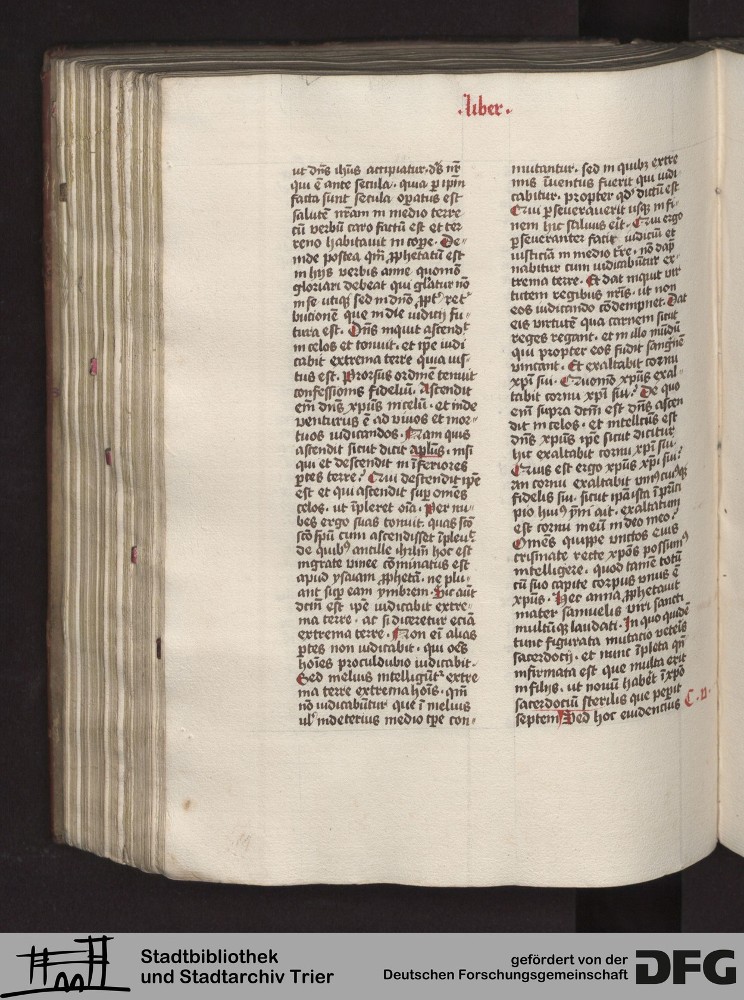 .liber.
ut dn̄s ih̄us accipiatur. ds̄ nr̄
qui ē ante secula. quia ꝑ ip̄m
facta sunt secula oꝑatus est
salutē nr̄am in medio terre
cū verbū caro factū est et ter
reno habitauit in corꝑe. De
inde postea qm̄ ꝓphetatū est
in hijs verbis anne quomō
gloriari debeat qui glāatur nō
in se utiqꝫ sed in dn̄o ꝓpt̉ ret
butionē que in die iudicij fu
tura est. Dn̄s inquit ascendt̉
in celos et tonuit. et ip̄e iudi
cabit extrema terre quia ius
tus est. Prorsus ordinē tenuit
confessionis fidelium. Ascendit
em̄ dn̄s xp̄us in celū. et inde
venturus ē ad viuos et mor
tuos iudicandos. Nam quis
ascendit sicut dicit apl̄us. nisi
qui et descendit in īferiores
ꝑtes terre? Qui descendit ip̄e
est et qui ascendit suꝑ omēs
celos. ut īpleret oīa. Per nu
bes ergo suas tonuit. quas sc̄o
sc̄o sp̄u cum ascendisset īpleuit.
de quibꝰ ancille ih̄rlm̄ hoc est
ingrate vinee cōminatus est
apud ysaiam ꝓphetā. ne plu
ant suꝑ eam ymbrem. Sic aūt
dc̄m est ip̄e iudicabit extre
ma terre. ac si diceretur eciā
extrema terre. Non eī alias
ꝑtes non iudicabit. qui oēs
hoīes proculdubio iudicabit.
Sed melius intelligūtr̉ extre
ma terre extrema hoīs. qm̄
nō iudicabūtur que ī melius
ul̉ in deterius medio tꝑe con
mutantur. sed in quibꝫ extre
mis īuentus fuerit qui iudi
cabitur. propter qd̉ dictū est
Qui ꝑseuerauerit usqꝫ in fi
nem hic saluus erit. Qui ergo
ꝑseueranter facit iudiciū et
iusticiā in medio tr̄e. nō dāp
nabitur cum iudicabūtur ex
trema terre. Et dat inquit vir
tutem regibus nr̄is. ut non
eos iudicando cōdempnet. Dat
eis virtutē qua carnem sicut
reges regant. et in illo mūdū
qui propter eos fudit sanguinē
vincant. Et exaltabit cornu
xp̄i sui. Quomō xp̄us exal
tabit cornu xp̄i sui? De quo
em̄ supra dc̄m est dn̄s ascen
dit in celos. et intellctūs est
dn̄s xp̄us ip̄e sicut dicitur
hic exaltabit cornu xp̄i sui.
Quis est ergo xp̄us xp̄i sui?
an cornu exaltabit vniꝰcuiꝰqꝫ
fidelis sui. sicut ip̄a ista ī prīci
pio huiꝰ ym̄i ait. exaltatum
est cornu meū in deo meo?
Omēs quippe unctos eius
crismate recte xp̄os possumꝰ
intelligere. quod tamē totū
cū suo capite corpus vnus ē
xp̄us. Hec anna ꝓphetauit
mater samuelis viri sancti
multūqꝫ laudati. In quo quidē
tunc figurata mutacio veteris
sacerdotij. et nunc īpleta qn̄
infirmata est que multa erat
in filijs. ut nouū haber̄et ī xp̄o
sacerdociū sterilis que peꝑit
septem Sed hoc euidencius C.v.
Stadtbibliothek
und Stadtarchiv Trier
gefördert von der
Deutschen Forschungsgemeinschaft
DFG